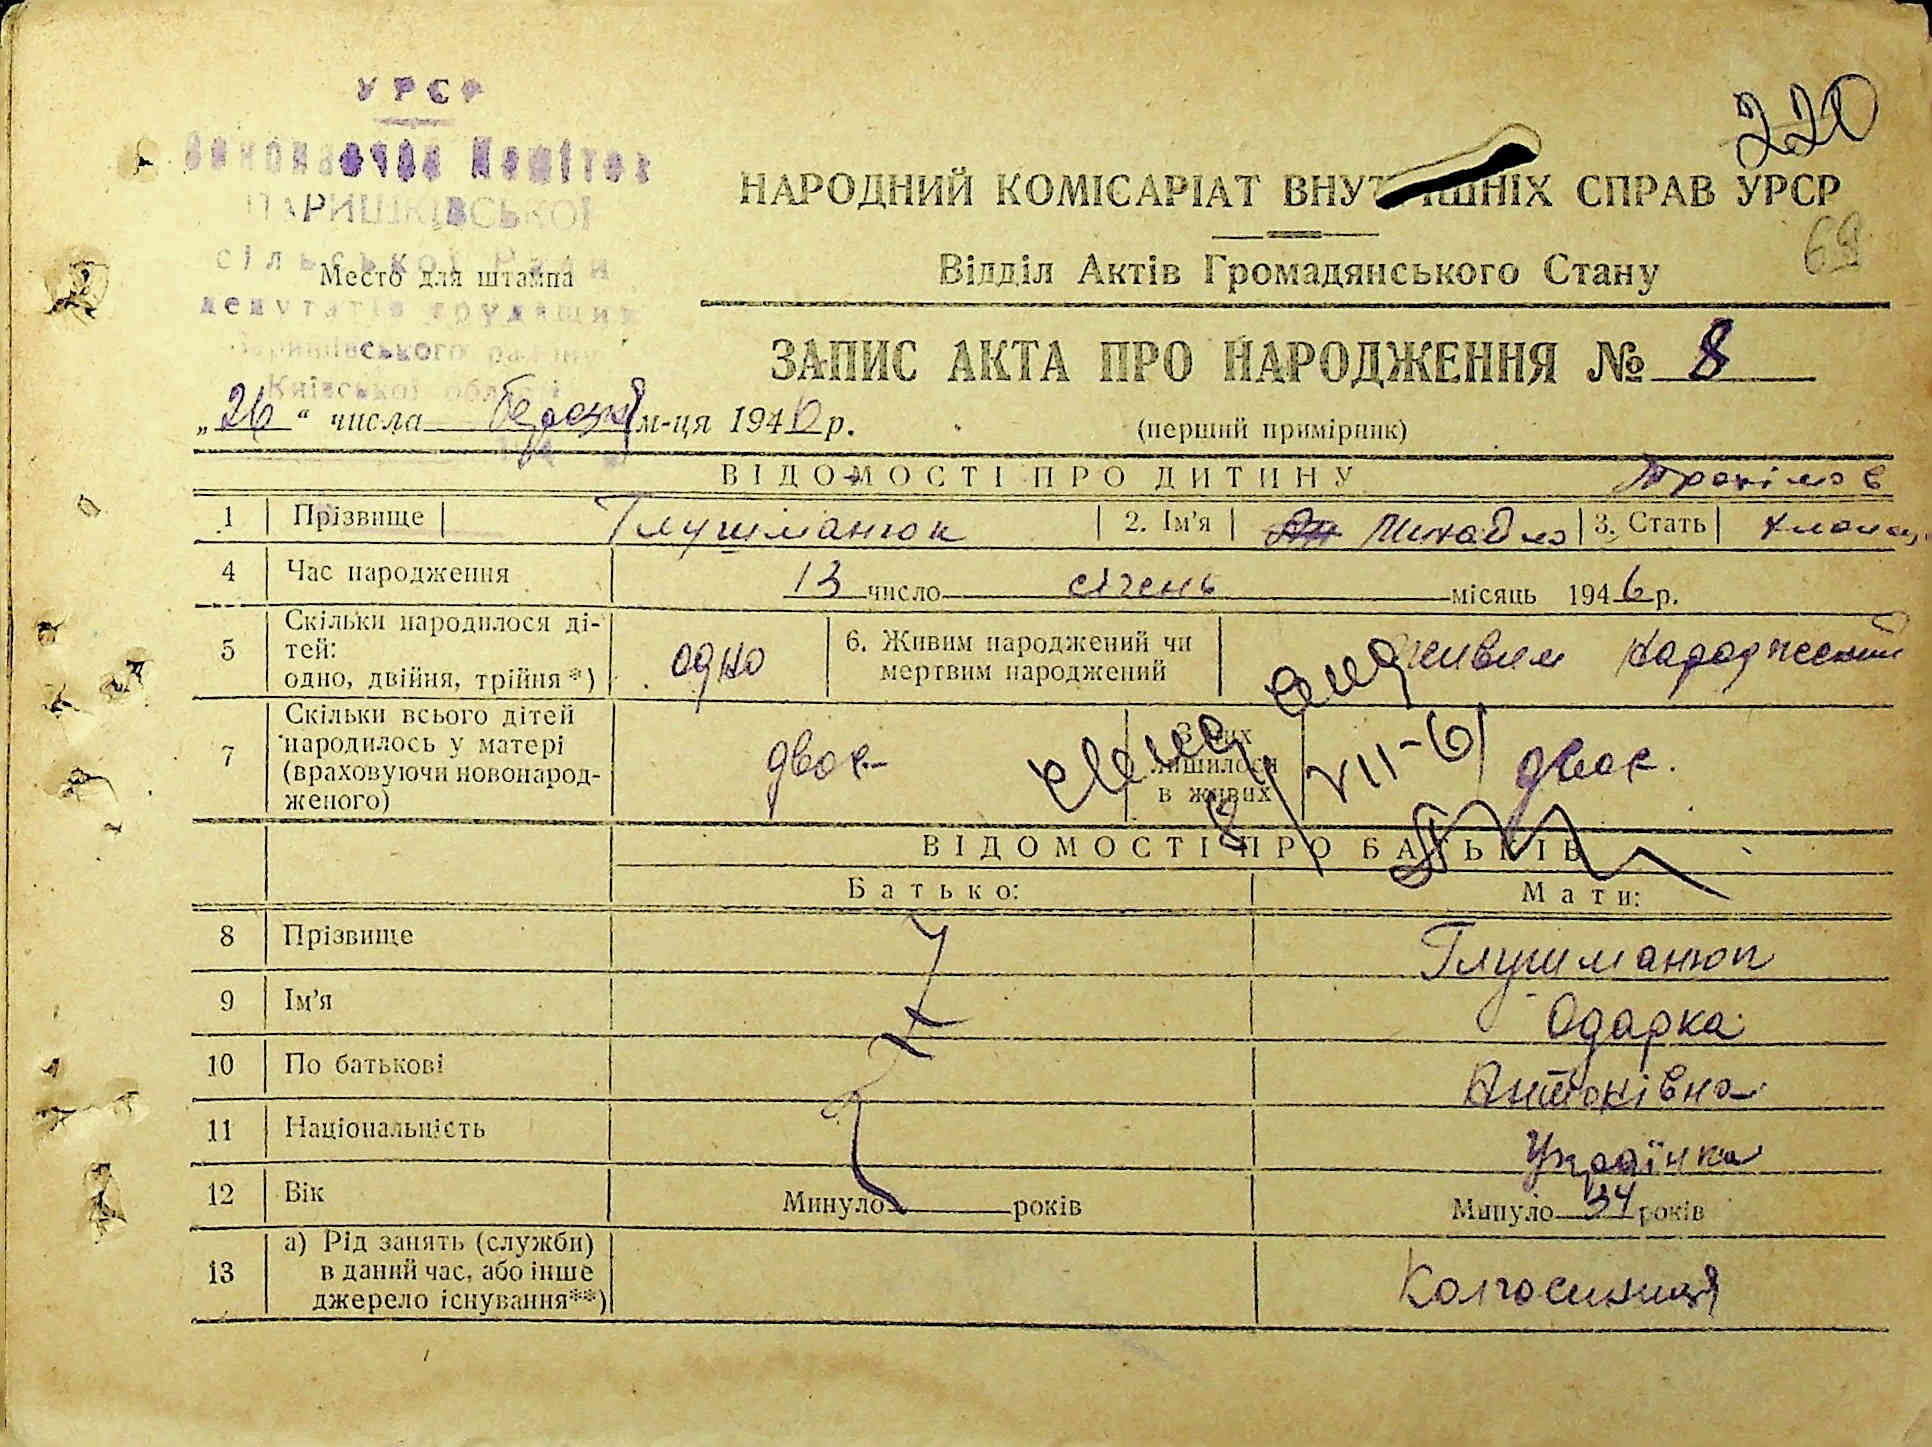 УРСР
Виконавчий Комітет
ПАРИШКІВСЬКОЇ
сільської Ради
депутатів трудящих
Київської області
Место для штампа
220
68
НАРОДНИЙ КОМІСАРІАТ ВНУТРІШНІХ СПРАВ УРСР
Відділ Актів Громадянського Стану
ЗАПИС АКТА ПРО НАРОДЖЕННЯ № 8
„26“ числа березня м-ця 1946 р.
(перший примірник)
ВІДОМОСТІ ПРО ДИТИНУ
1 Прізвище Глушманюк 2. Ім'я Михайло 3. Стать хлопец
4 Час народження 13 число січень місяць 1946 р.
5 Скільки народилося ді-
тей:
одно, двійня, трійня*) одно 6. Живим народжений чи
мертвим народжений живим народжений
7 Скільки всього дітей
народилось у матері
(враховуючи новонарод-
женого) двое З них
лишилося
в живих двое.
VII-61
ВІДОМОСТІ ПРО БАТЬКІВ
Батько: Мати:
8 Прізвище Глушманюк
9 Ім'я Одарка
10 По батькові Антонівна
11 Національність Українка
12 Вік Минуло років Минуло 34 років
13 а) Рід занять (служби)
в даний час, або інше
джерело існування**) Колгоспниця